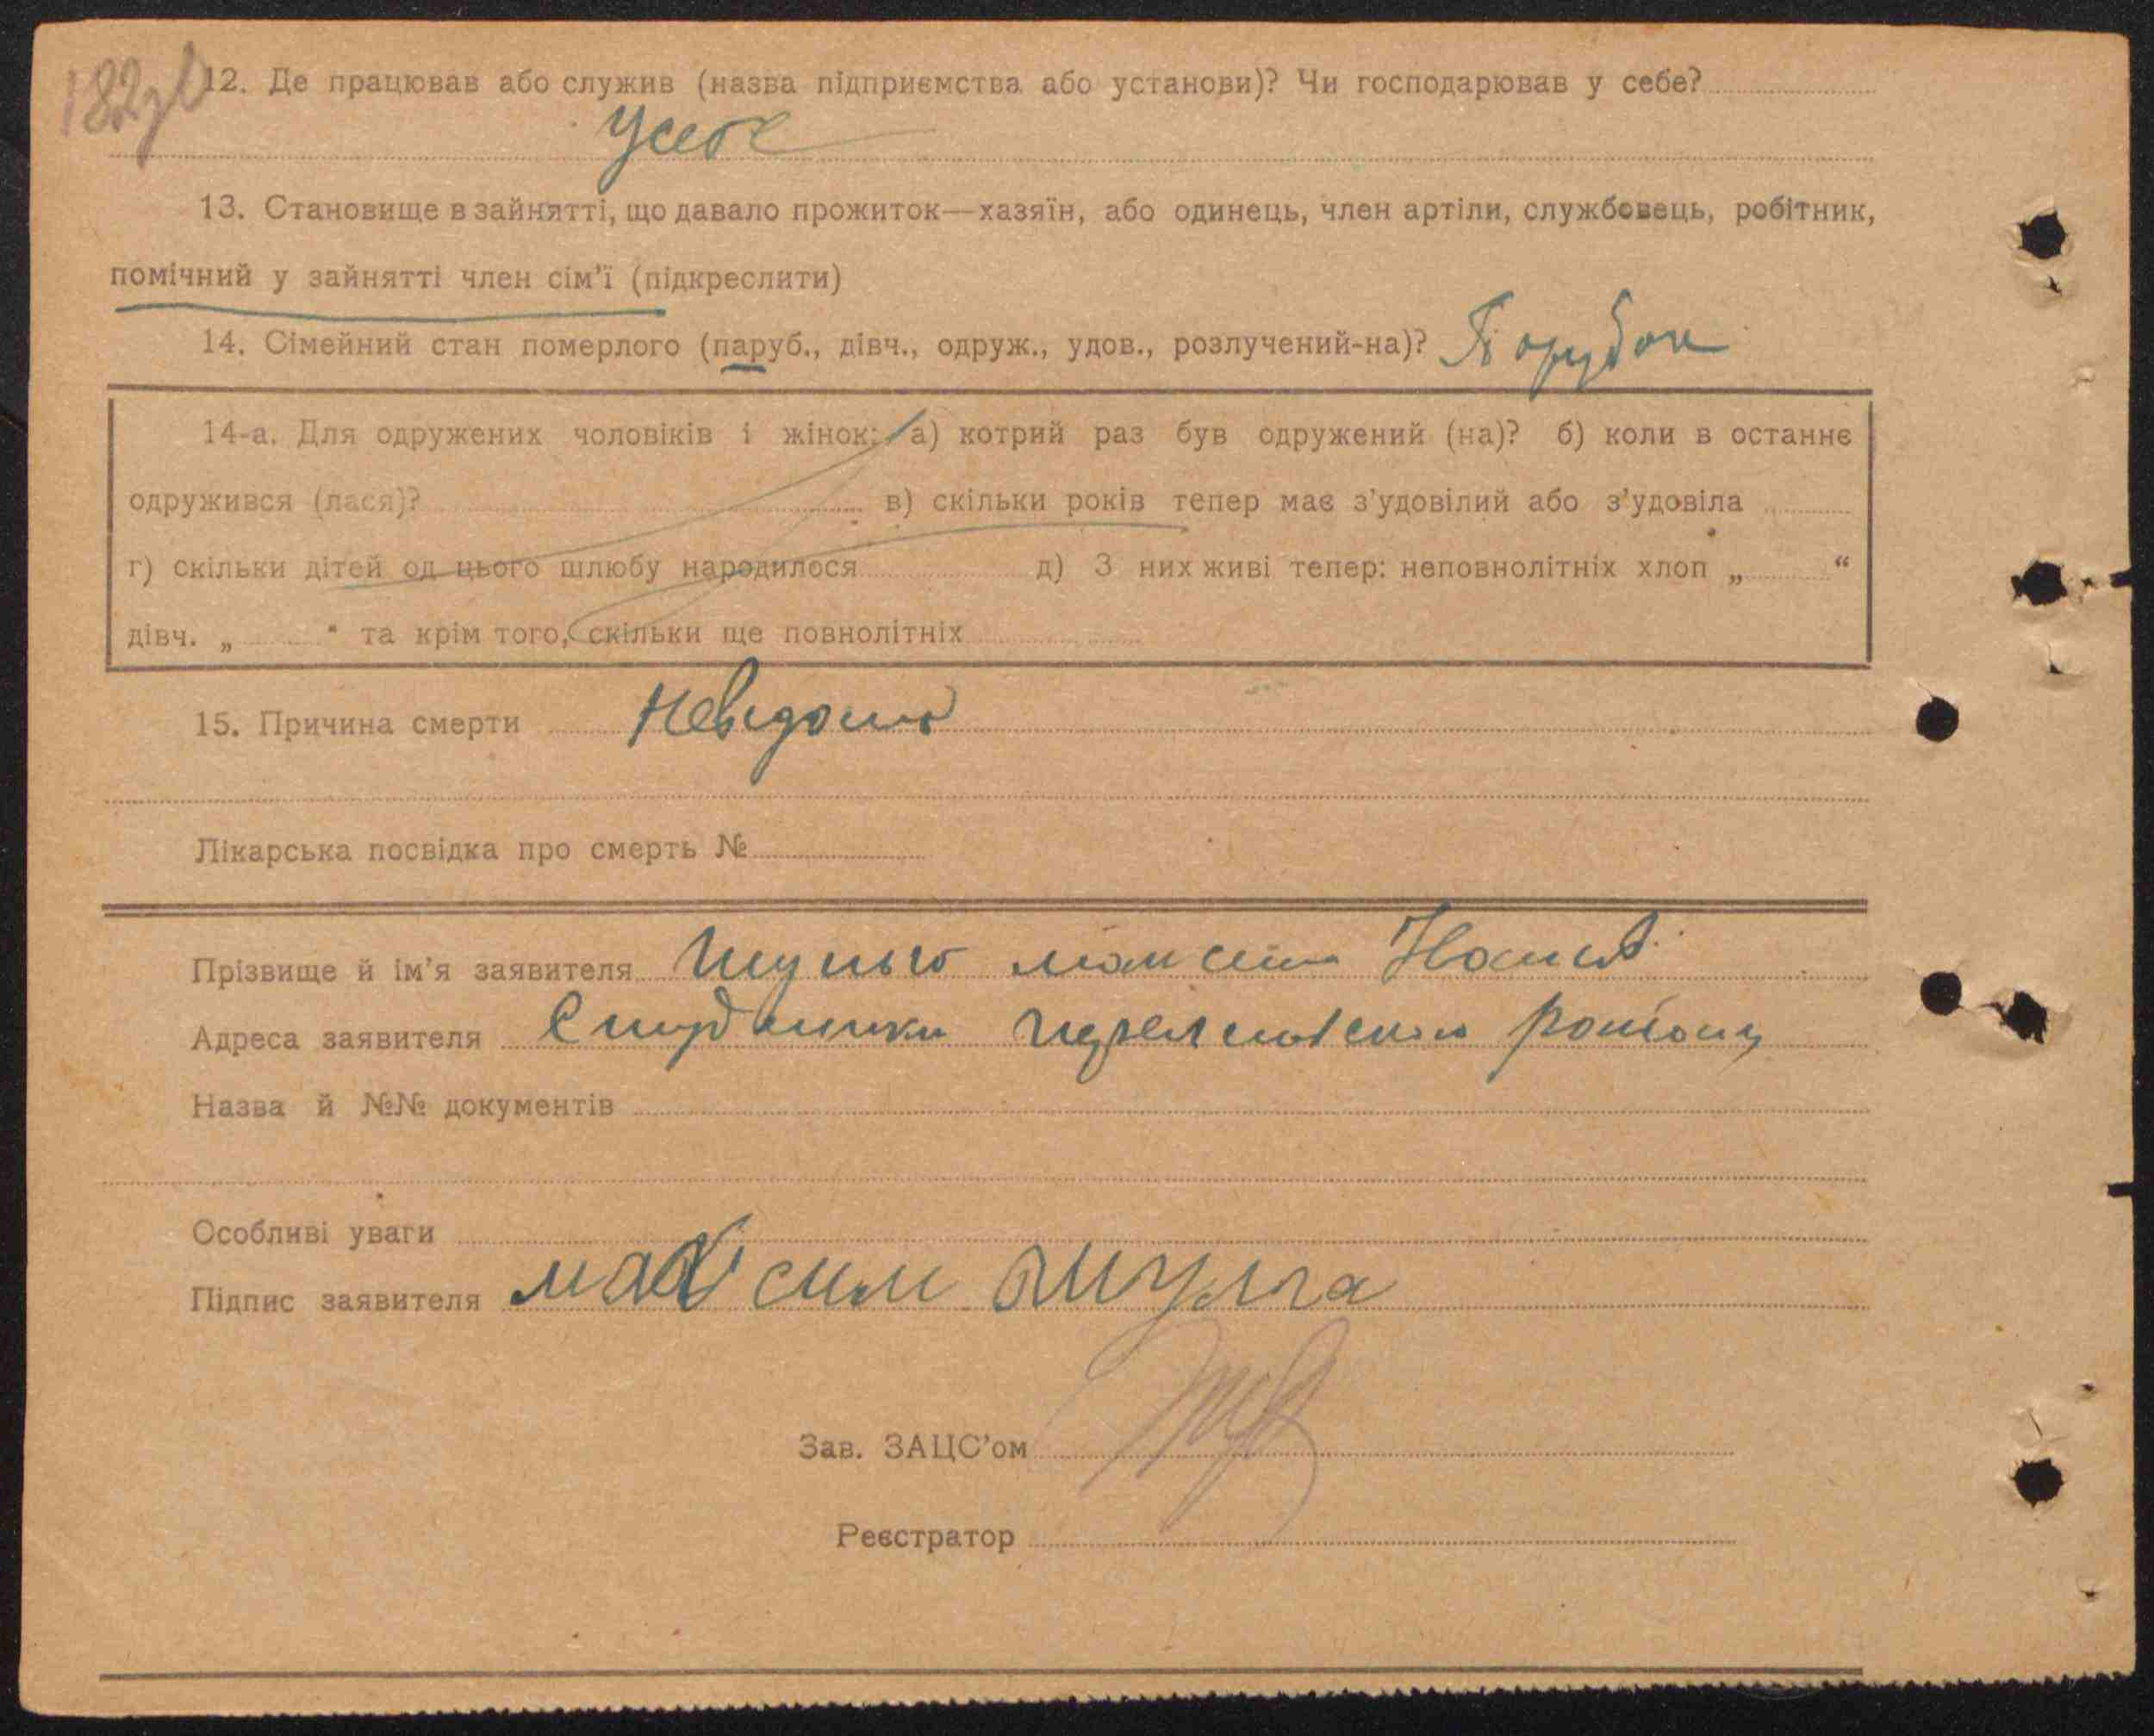 182
12. Де працював або служив (назва підприємства або установи)? Чи господарював у себе?
У себе
13. Становище в зайнятті, що давало прожиток—хазяїн, або одинець, член артіли, службовець, робітник,
помічний у зайнятті член сім'ї (підкреслити)
14. Сімейний стан померлого (паруб., дівч., одруж., удов., розлучений-на)? Парубок
14-а. Для одружених чоловіків і жінок: а) котрий раз був одружений (на)? б) коли в останнє
одружився (лася)? в) скільки років тепер має з'удовілий або з'удовіла
г) скільки дітей од цього шлюбу народилося д) З них живі тепер: неповнолітніх хлоп „ “
дівч. „ “ та крім того, скільки ще повнолітніх
15. Причина смерти Невідома
Лікарська посвідка про смерть №
Прізвище й ім'я заявителя Шульга Максим
Адреса заявителя Студеники району
Назва й №№ документів
Особливі уваги
Підпис заявителя Максим Шулга
Зав. ЗАЦС'ом
Реєстратор